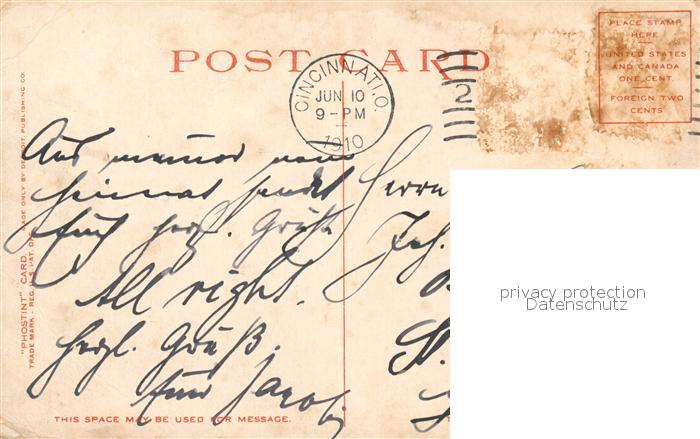 POST CARD
PLACE STAMP
HERE
UNITED STATES
AND CANADA
ONE CENT
FOREIGN TWO
CENTS
CINCINNATI, O.
JUN 10
9-PM
1910
2
"PHOSTINT" CARD. MADE ONLY BY DETROIT PUBLISHING CO.
TRADE MARK - REG. U.S. PAT. OFF.
Aus meiner neuen
Heimat sendet
Euch herzl. Grüße
All right.
Herzl. Gruß.
Euer Jacob
Herrn
Joh.
St.
privacy protection
Datenschutz
THIS SPACE MAY BE USED FOR MESSAGE.